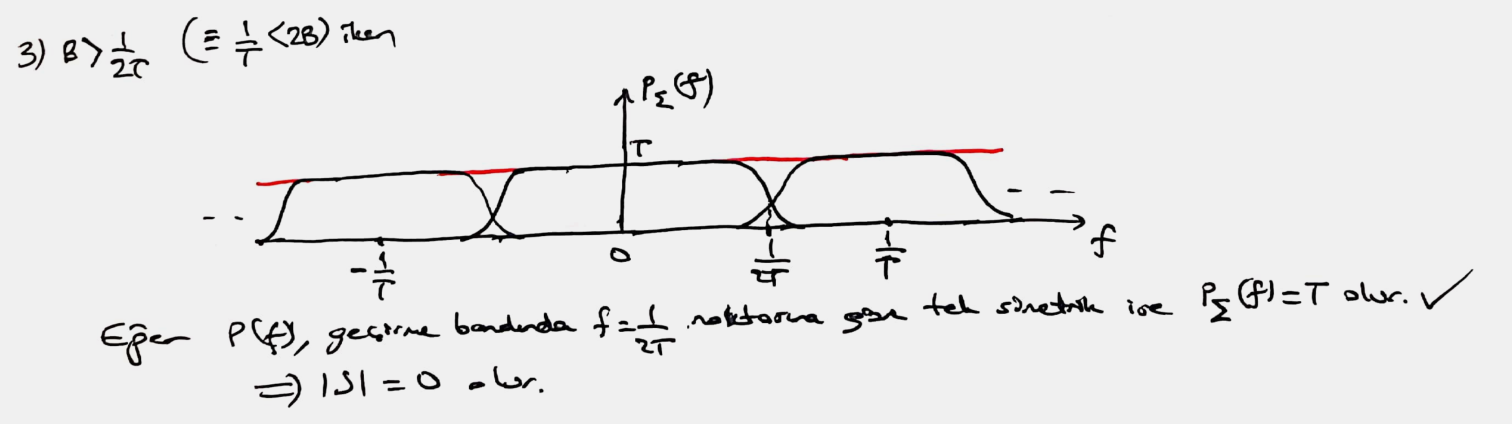 3) B > 1/2T (≡ 1/T < 2B) iken
P_Σ(f)
T
- -
- -
-1/T
0
1/2T
1/T
f
Eğer P(f), geçirme bandında f = 1/2T noktasına göre tek simetrik ise P_Σ(f) = T olur. ✓
⇒ ISI = 0 olur.